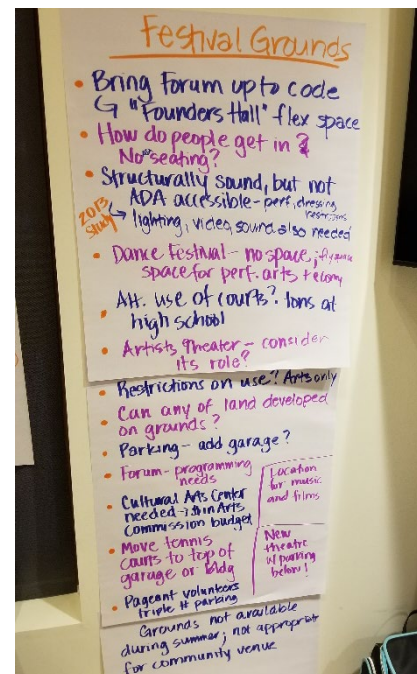 Festival Grounds
• Bring Forum up to code
G "Founders Hall" flex space
• How do people get in?
No seating?
• Structurally sound, but not
ADA accessible - perf, dressing, restrooms
2013 Study → lighting, video, sound also needed
• Dance Festival - no space;
space for perf. arts +
• Alt. use of courts? tons at
high school
• Artists theater - consider
its role?
• Restrictions on use? Arts only
• Can any of land developed
on grounds?
• Parking - add garage?
• Forum - programming
needs
• Cultural Arts Center
needed → in Arts
Commission budget
• Move tennis
courts to top of
garage or bldg
• Pageant volunteers
triple # parking
Location
for music
and films
New
theatre
w/parking
below!
Grounds not available
during summer; not appropriat
for community venue